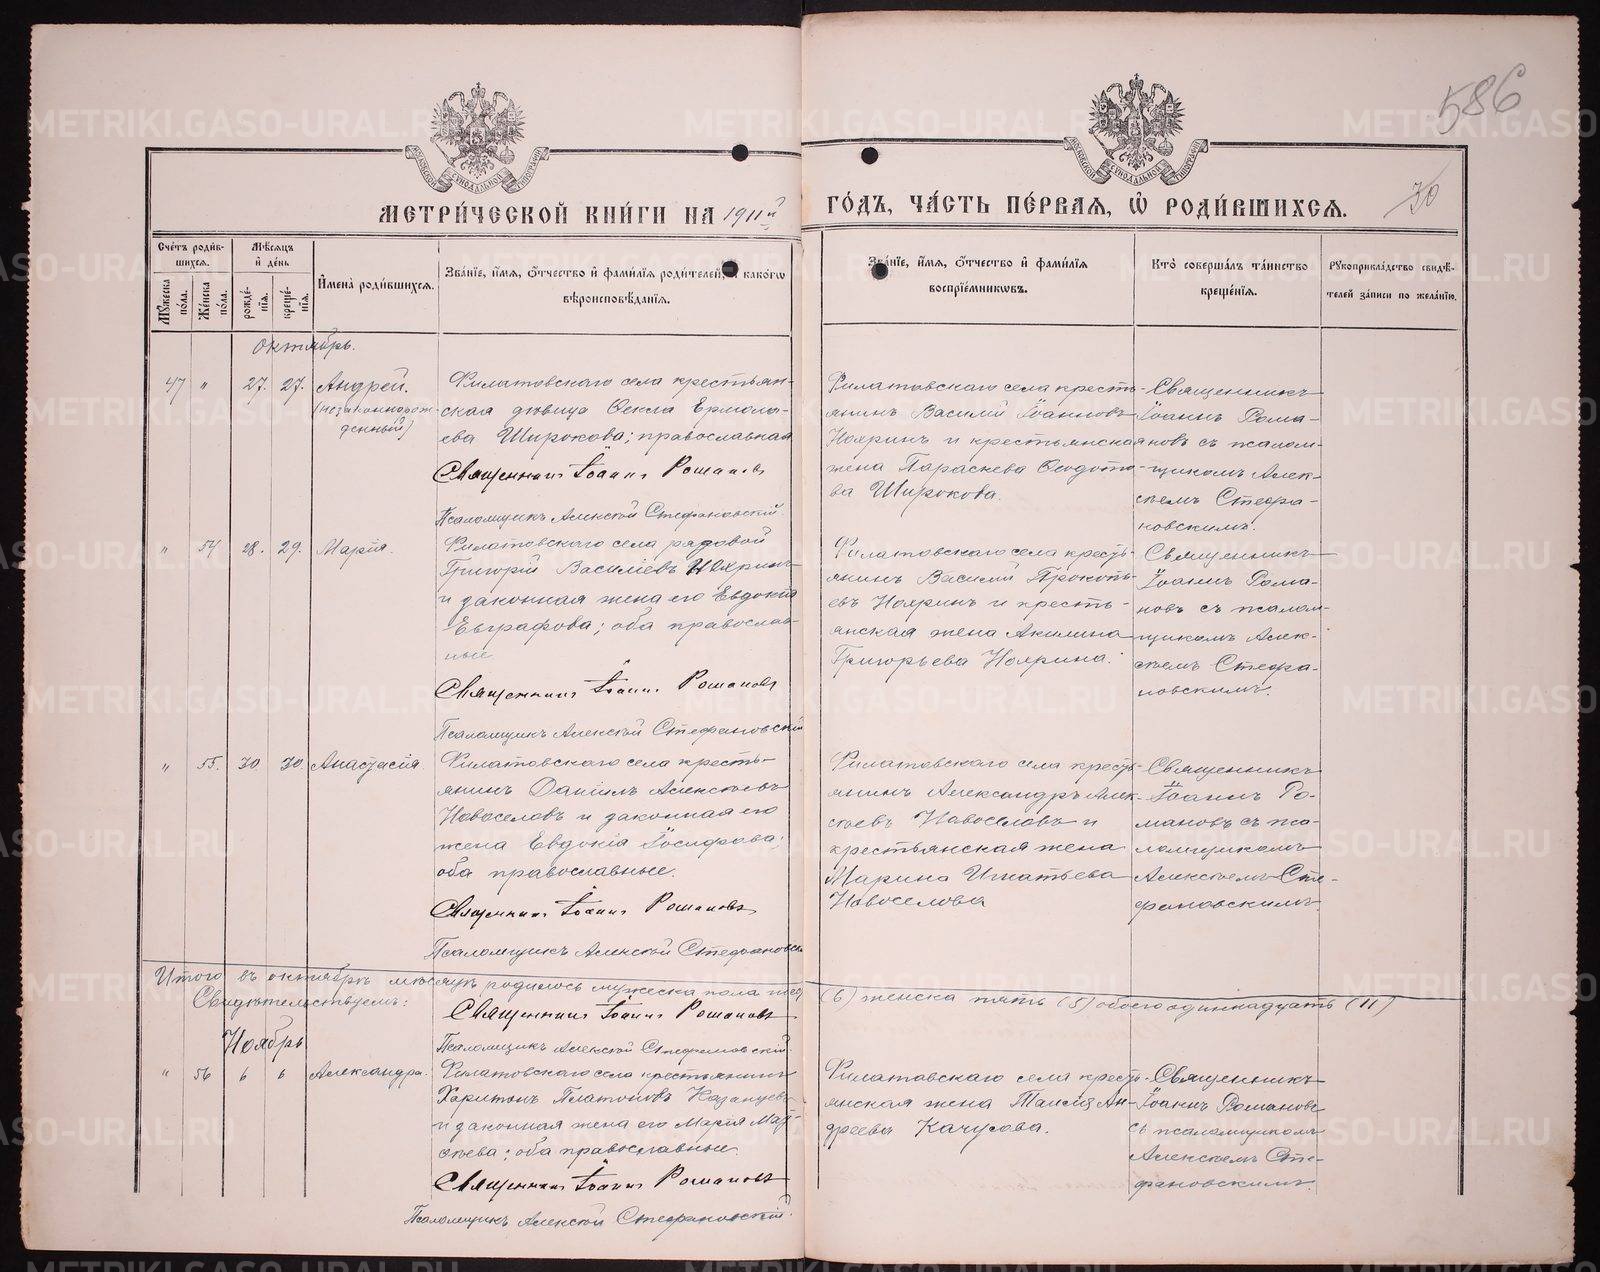 586
30
МЕТРИ́ЧЕСКОЙ КНИ́ГИ НА 1911й ГО́ДЪ, ЧА́СТЬ ПЕ́РВАЯ, Ѡ РОДИ́ВШИХСЯ.
Сче́тъ роди́вшихся.
Мѣ́сяцъ и де́нь
Мꙋ́жеска по́ла.
Же́нска по́ла.
рожде́нія.
креще́нія.
И҆мена̀ роди́вшихся.
Зва́ніе, и҆́мя, ѻ҆́тчество и҆ фами́лія роди́телей, и҆ како́гѡ
вѣроисповѣ́данія.
Зва́ніе, и҆́мя, ѻ҆́тчество и҆ фами́лія
воспріе́мникѡвъ.
Кто̀ соверша́лъ та́инство
креще́нія.
Рꙋкоприкла́дство свидѣ́-
телей за́писи по жела́нію.
Октябрь.
47 " 27. 27. Андрей.
(незаконнорож-
денный)
Филатовскаго села крестьян-
ская дѣвица Ѳекла Ермола-
ева Широкова; православная
Священникъ Іоаннъ Романовъ
Псаломщикъ Алексѣй Стефановскій
Филатовскаго села кресть-
янинъ Василій Іоанновъ
Нояринъ и крестьянская
жена Параскева Ѳеодото-
ва Широкова.
Священникъ
Іоаннъ Рома-
новъ съ псалом-
щикомъ Алек-
сѣемъ Стефа-
новскимъ.
" 54 28. 29. Марія.
Филатовскаго села рядовой
Григорій Василіевъ Нояринъ
и законная жена его Евдокія
Евграфова; оба православ-
ные.
Священникъ Іоаннъ Романовъ
Псаломщикъ Алексѣй Стефановскій
Филатовскаго села кресть-
янинъ Василій Прокопь-
евъ Нояринъ и кресть-
янская жена Акилина
Григорьева Ноярина.
Священникъ
Іоаннъ Рома-
новъ съ псалом-
щикомъ Алек-
сѣемъ Стефа-
новскимъ.
" 55. 30. 30. Анастасія
Филатовскаго села кресть-
янинъ Даніилъ Алексѣевъ
Новоселовъ и законная его
жена Евдокія Іосифова;
оба православные.
Священникъ Іоаннъ Романовъ
Псаломщикъ Алексѣй Стефановскій
Филатовскаго села кресть-
янинъ Александръ Алек-
сѣевъ Новоселовъ и
крестьянская жена
Марина Игнатьева
Новоселова
Священникъ
Іоаннъ Ро-
мановъ съ пса-
ломщикомъ
Алексѣемъ Сте-
фановскимъ.
Итого въ октябрѣ мѣсяцѣ родилось мужеска пола шесть (6) женска пять (5) обоего одиннадцать (11)
Свидѣтельствуемъ:
Священникъ Іоаннъ Романовъ
Псаломщикъ Алексѣй Стефановскій.
Ноябрь
" 56 6 6 Александра.
Филатовскаго села крестьянинъ
Харитонъ Платоновъ Казанцевъ
и законная жена его Марія Мат-
ѳѣева; оба православные.
Священникъ Іоаннъ Романовъ
Псаломщикъ Алексѣй Стефановскій.
Филатовскаго села кресть-
янская жена Таисія Ан-
дреева Качусова.
Священникъ
Іоаннъ Романовъ
съ псаломщикомъ
Алексѣемъ Сте-
фановскимъ.
METRIKI.GASO-URAL.RU